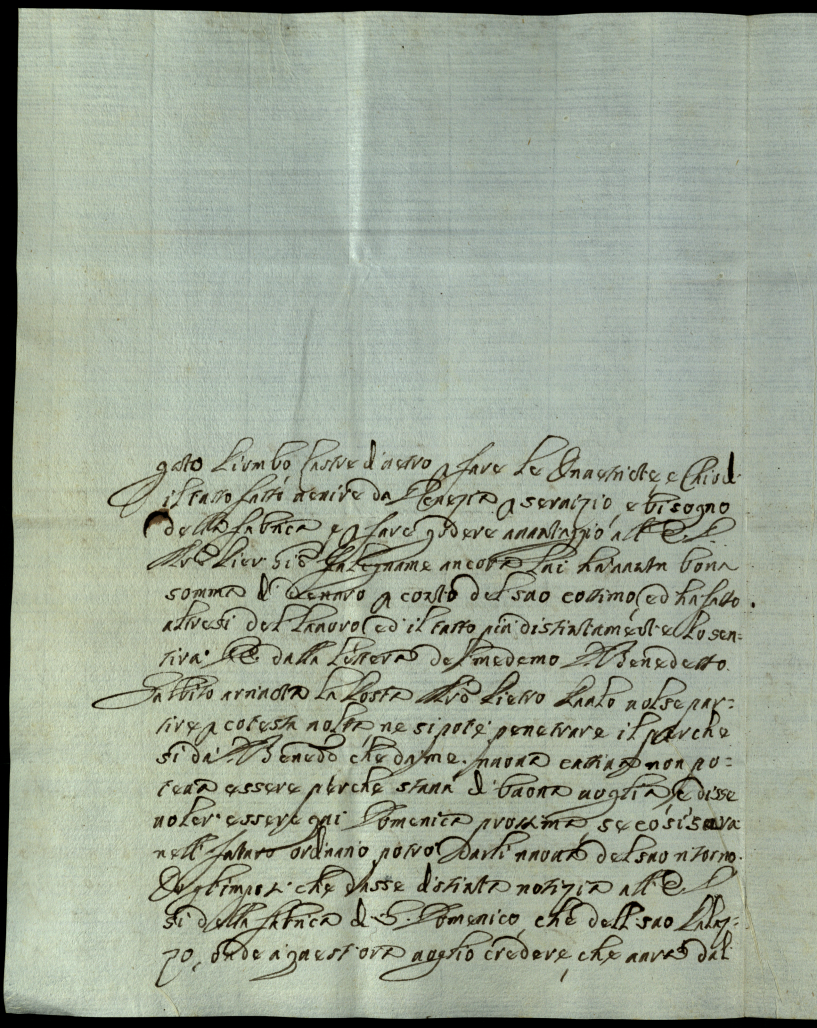 gato Piombo lastre di vetro p fare le Invetriate e Chiodi
il tutto fatti venire da Venezia p servizio, e bisogno
della fabrica e p fare godere avantagio all' E. S.
Mro Pier Gio falegname ancora lui ha avuta bona
somma di denaro p conto del suo cottimo, ed ha fatto
altresi del lavoro ed il tutto più distintamente lo sen=
tirà dalla lettera del medemo Benedetto
Subbito arivata la Posta Mro Pietro Paolo volse par=
tire p cotesta volta, ne si potè penetrare il perche
si da Benedo che da me. nuova cattiva non po=
teva essere perche stava di buona voglia, e disse
voler essere qui Domenica prossima, se cosi sarà
nell futuro ordinario potrò darli nuova del suo ritorno.
che dasse distinta notizia all' E. S.
si della fabrica di S. Domenico, che dell suo Palaz=
zo, onde a quest'ora voglio credere, che avrà dal